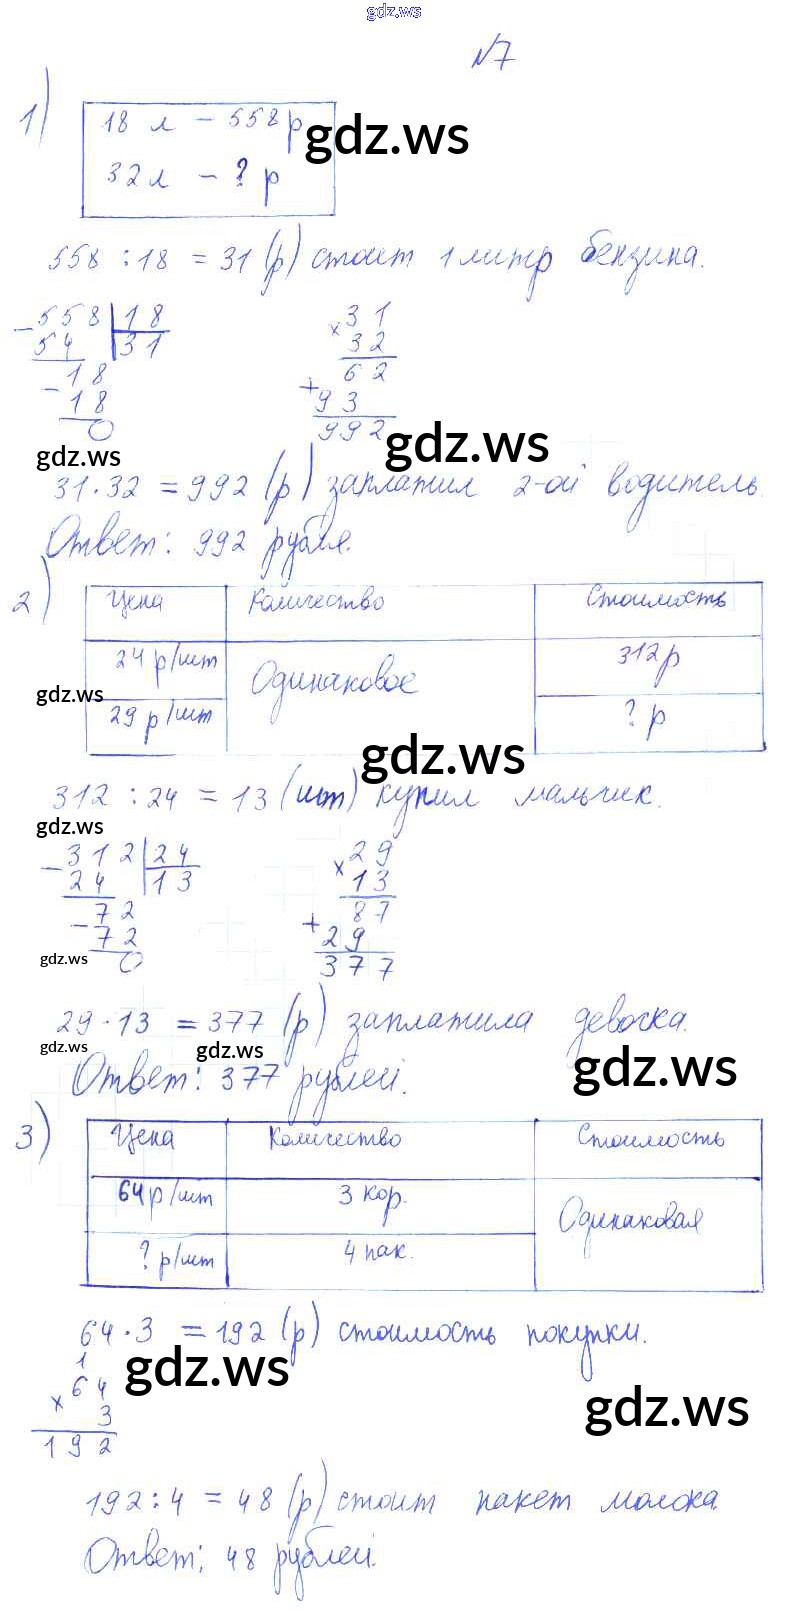 gdz.ws
№7
1)
18 л - 558 р
32 л - ? р
gdz.ws
558 : 18 = 31 (р) стоит 1 литр бензина.
- 558 | 18
54 31
- 18
18
0
× 31
32
62
+ 93
992
gdz.ws
gdz.ws
31 · 32 = 992 (р) заплатил 2-ой водитель.
Ответ: 992 рубля.
2)
Цена Количество Стоимость
24 р/шт Одинаковое 312 р
29 р/шт ? р
gdz.ws
gdz.ws
312 : 24 = 13 (шт) купил мальчик.
gdz.ws
- 312 | 24
24 13
- 72
72
0
× 29
13
87
+ 29
377
gdz.ws
29 · 13 = 377 (р) заплатила девочка.
gdz.ws
gdz.ws
gdz.ws
Ответ: 377 рублей.
3)
Цена Количество Стоимость
64 р/шт 3 кор. Одинаковая
? р/шт 4 пак.
64 · 3 = 192 (р) стоимость покупки.
gdz.ws
gdz.ws
1
× 64
3
192
192 : 4 = 48 (р) стоит пакет молока.
Ответ: 48 рублей.